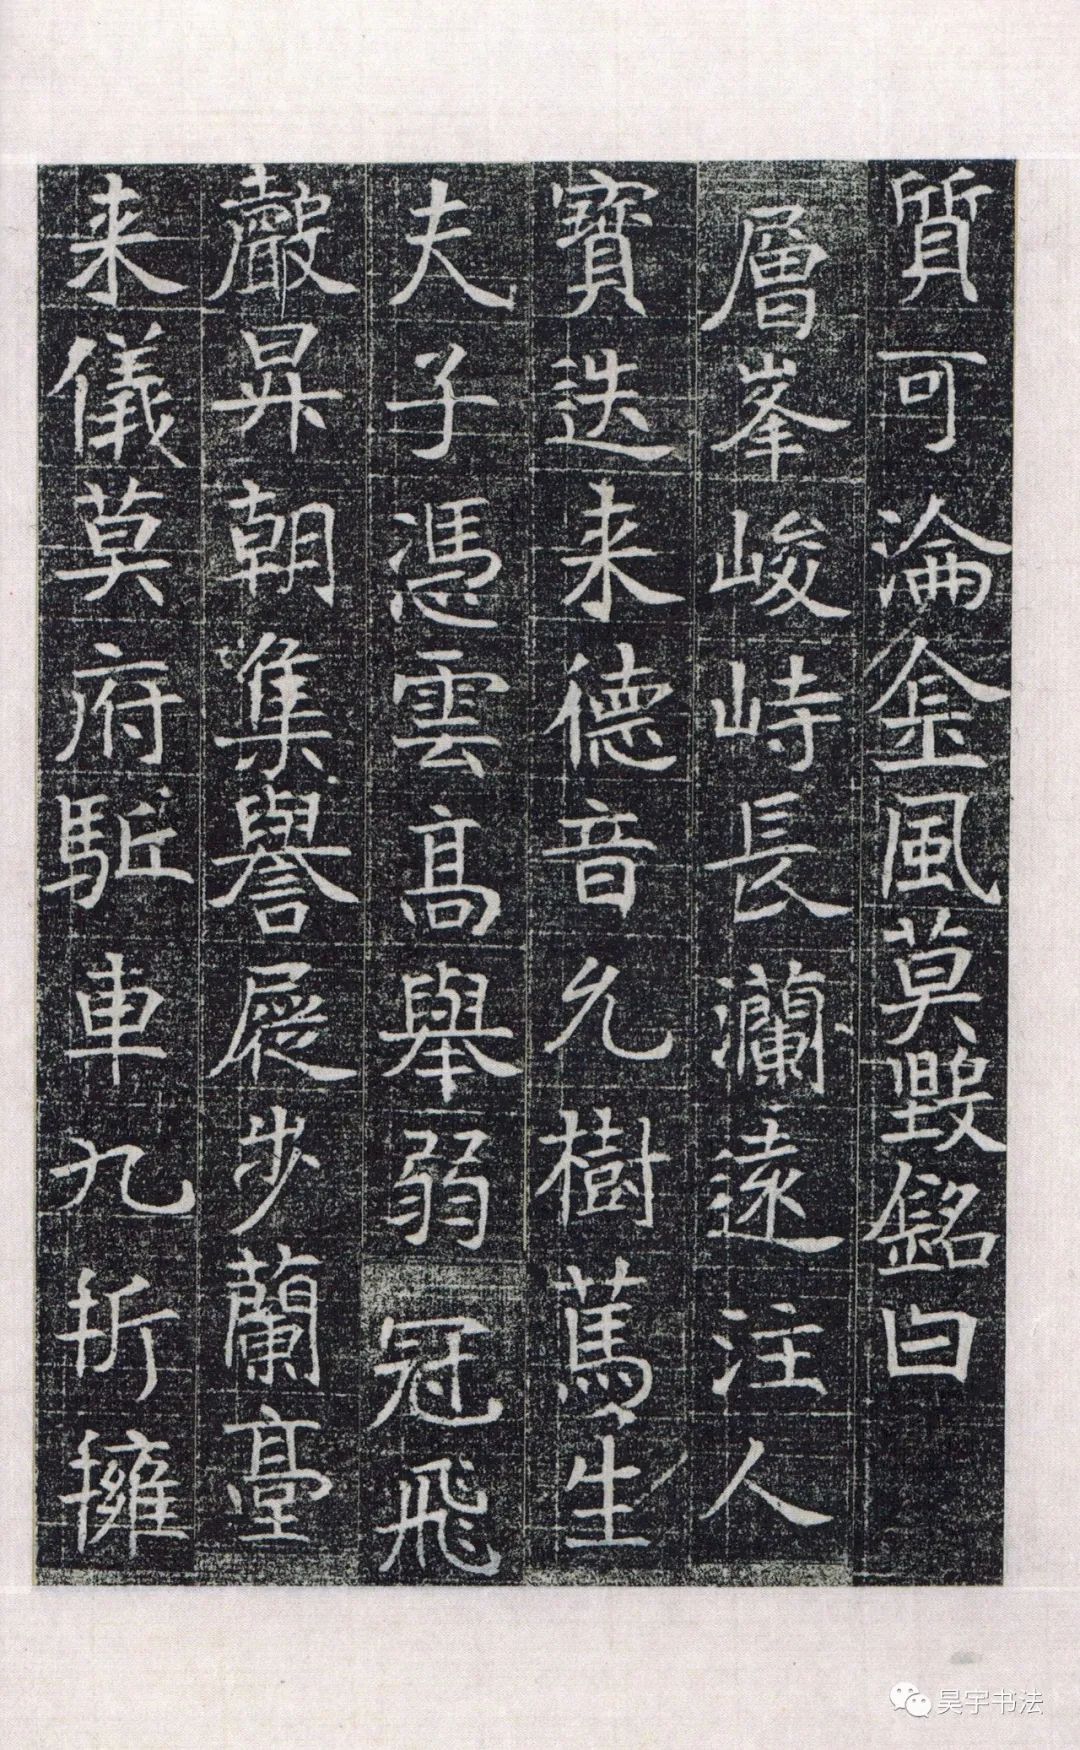 質可淪金風莫毀銘曰
層峯峻峙長瀾遠注人
寶迭来德音允樹篤生
夫子憑雲高舉弱冠飛
聲昇朝集譽屣步蘭臺
来儀莫府駈車九折擁
昊宇书法